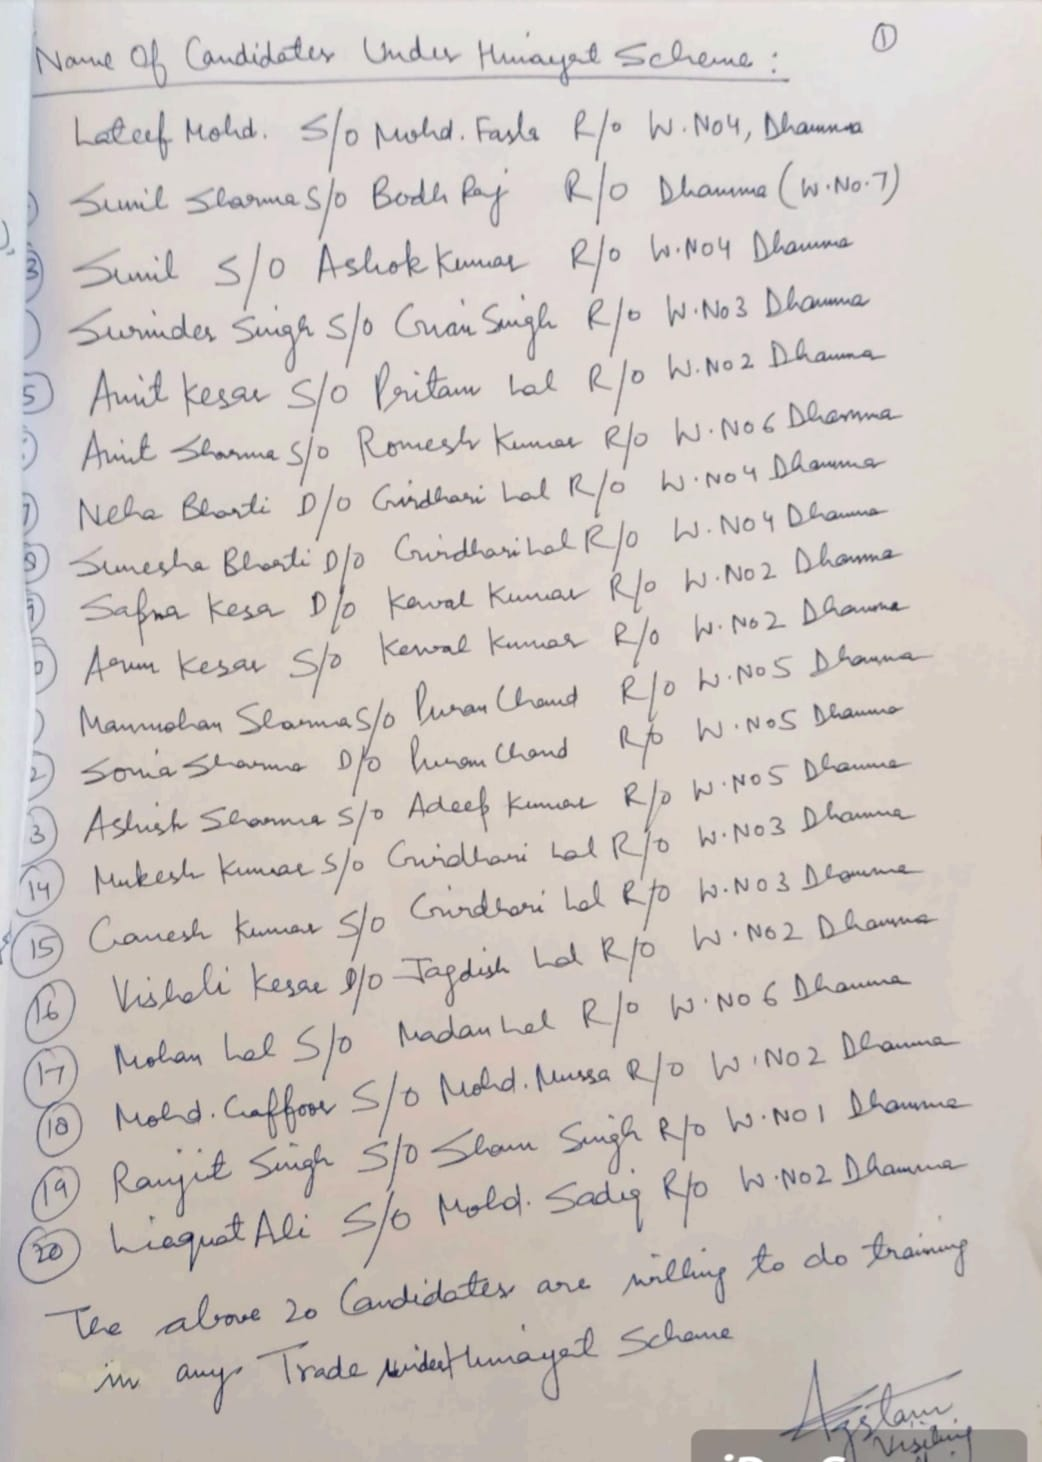 ①
Name Of Candidates Under Himayat Scheme :
Lateef Mohd. S/o Mohd. Fasla R/o W.No4, Dhamma
Sunil Sharma S/o Bodh Raj R/o Dhamma (W.No.7)
3 Sunil S/o Ashok Kumar R/o W.No4 Dhamma
Surinder Singh S/o Gian Singh R/o W.No3 Dhamma
5 Amit Kesar S/o Pritam Lal R/o W.No2 Dhamma
Amit Sharma S/o Romesh Kumar R/o W.No6 Dhamma
7 Neha Bharti D/o Girdhari Lal R/o W.No4 Dhamma
8 Sunesha Bharti D/o Girdhari Lal R/o W.No4 Dhamma
9 Sapna Kesar D/o Kewal Kumar R/o W.No2 Dhamma
0 Arun Kesar S/o Kewal Kumar R/o W.No2 Dhamma
Manmohan Sharma S/o Puran Chand R/o W.No5 Dhamma
2 Sonia Sharma D/o Puran Chand R/o W.No5 Dhamma
3 Ashish Sharma S/o Adeep Kumar R/o W.No5 Dhamma
14 Mukesh Kumar S/o Girdhari Lal R/o W.No3 Dhamma
15 Ganesh Kumar S/o Girdhari Lal R/o W.No3 Dhamma
16 Vishali Kesar D/o Jagdish Lal R/o W.No2 Dhamma
17 Mohan Lal S/o Madan Lal R/o W.No6 Dhamma
18 Mohd. Gaffoor S/o Mohd. Mussa R/o W.No2 Dhamma
19 Ranjit Singh S/o Sham Singh R/o W.No1 Dhamma
20 Liaquat Ali S/o Mohd. Sadiq R/o W.No2 Dhamma
The above 20 Candidates are willing to do training
in any Trade under Himayat Scheme